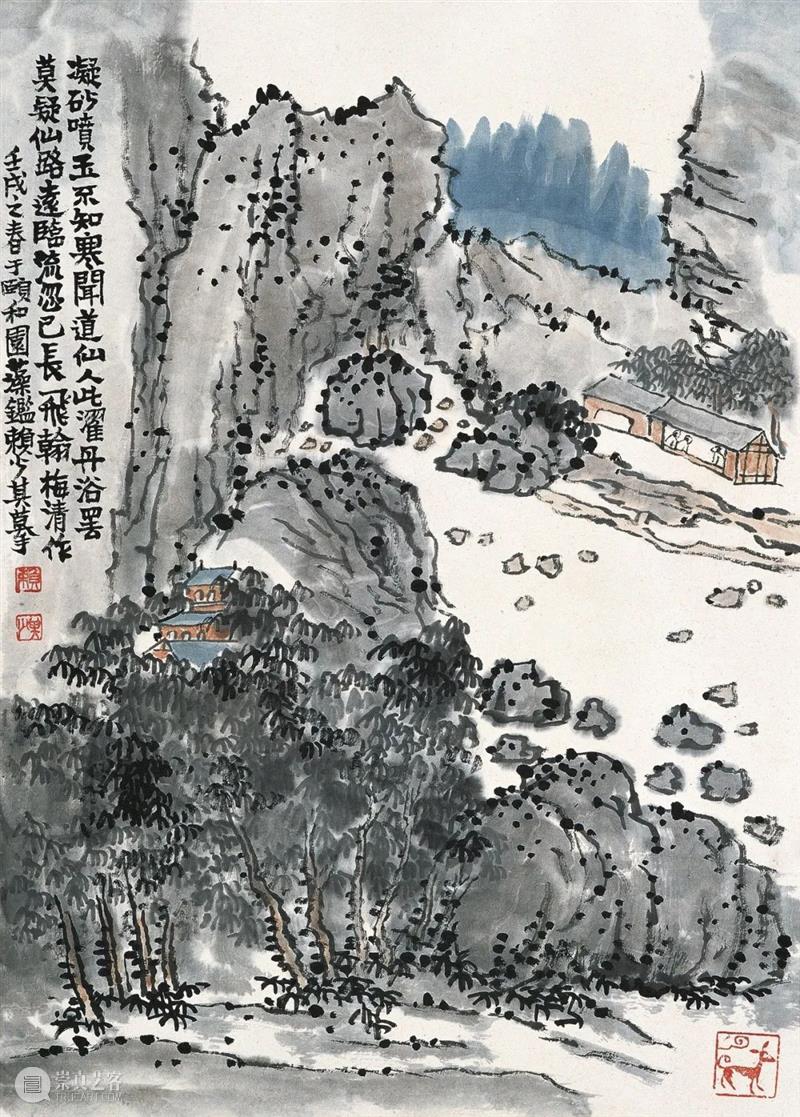 凝砂噴玉不知寒聞道仙人此濯丹浴罢
莫疑仙路遠臨流忽已長飛翰梅清作
壬戌之春于頤和園藻鑑賴少其摹
崇真艺客